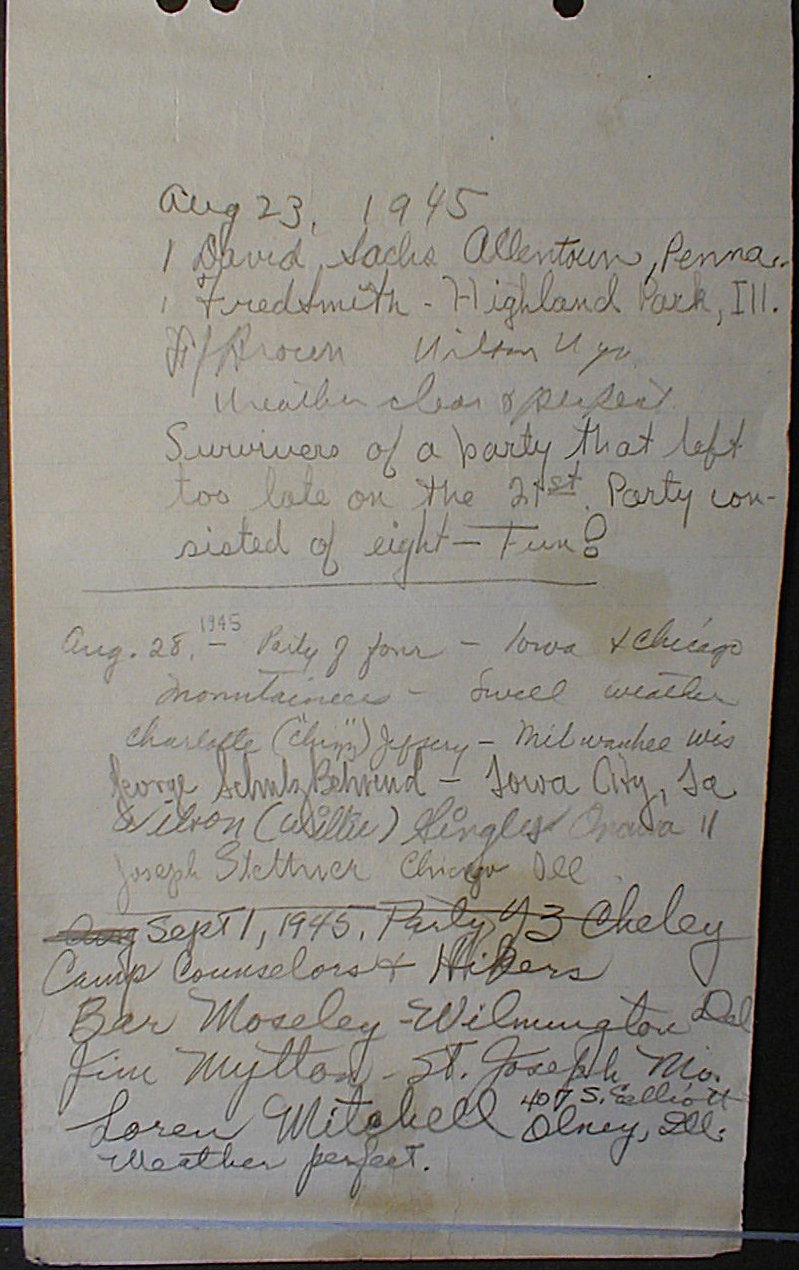 Aug 23, 1945
1 David Sachs Allentown, Penna.
1 Fred Smith - Highland Park, Ill.
Brown Wilson Wyo.
Weather clear & perfect
Survivers of a party that left
too late on the 21st. Party con-
sisted of eight — Fun!
Aug. 28, - 1945 Party of four - Iowa & Chicago
Mountaineers - Swell weather
Charlotte Jeffery - Milwaukee Wis
George Schulz Behrend - Iowa City, Ia
Wilson (Willie) "
Joseph Stettner Chicago Ill.
Aug Sept 1, 1945. Party of 3 Cheley
Camp Counselors & Hikers
Bar Moseley - Wilmington Del
Jim Mytton - St. Joseph Mo.
Loren Mitchell 407 S. Elliott
Olney, Ill.
Weather perfect.